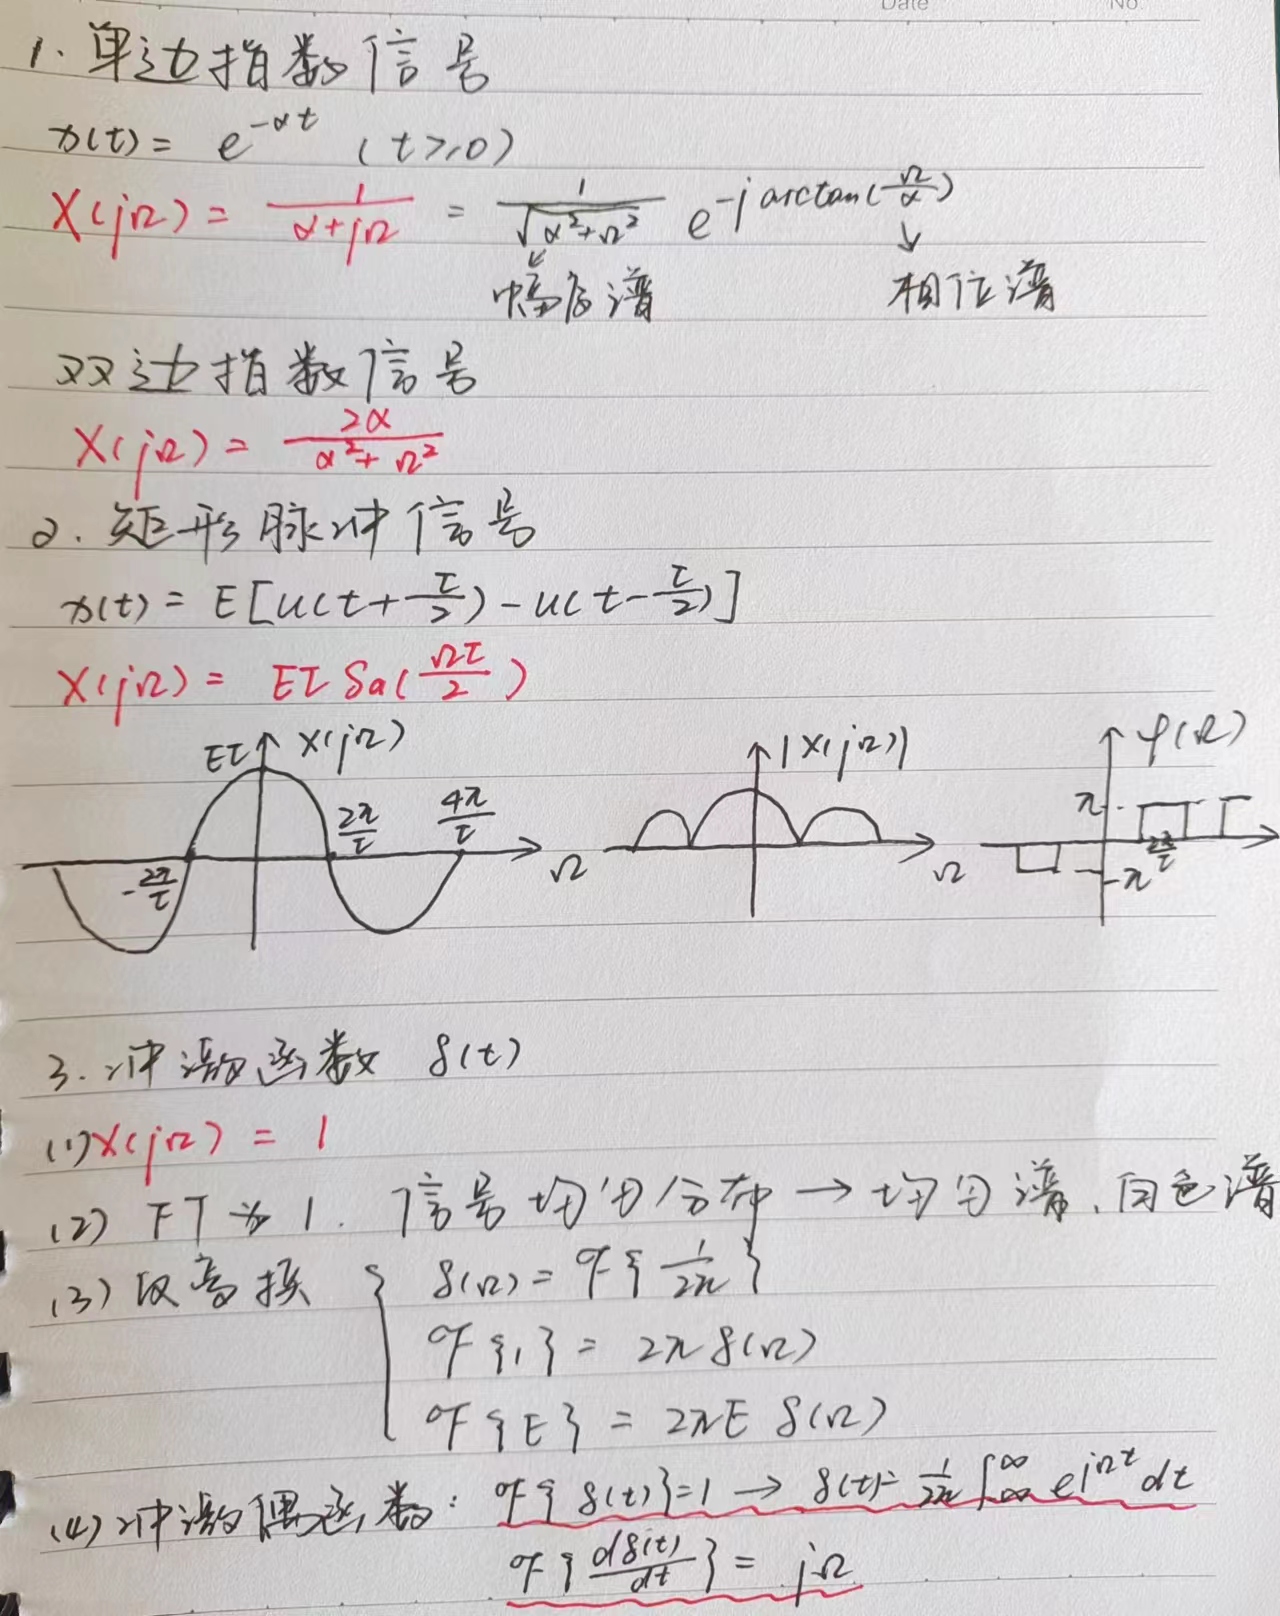 Date No
1. 单边指数信号
x(t) = e^{-αt} (t≥0)
X(jΩ) = \frac{1}{α+jΩ} = \frac{1}{\sqrt{α²+Ω²}} e^{-j arctan(\frac{Ω}{α})}
↙ ↓
幅度谱 相位谱
双边指数信号
X(jΩ) = \frac{2α}{α²+Ω²}
2. 矩形脉冲信号
x(t) = E[u(t+\frac{τ}{2}) - u(t-\frac{τ}{2})]
X(jΩ) = Eτ Sa(\frac{Ωτ}{2})
Eτ X(jΩ) -\frac{2π}{τ} \frac{2π}{τ} \frac{4π}{τ} Ω
|X(jΩ)| Ω
φ(Ω) π -π \frac{2π}{τ}
3. 冲激函数 δ(t)
(1) X(jΩ) = 1
(2) FT为1. 信号均匀分布 → 均匀谱、白色谱
(3) 反变换 { δ(Ω) = ℱ{\frac{1}{2π}}
ℱ{1} = 2πδ(Ω)
ℱ{E} = 2πE δ(Ω)
(4) 冲激偶函数: ℱ{δ(t)}=1 → δ(t)= \frac{1}{2π} ∫_{∞}^{∞} e^{jΩt} dt
ℱ{\frac{dδ(t)}{dt}} = jΩ